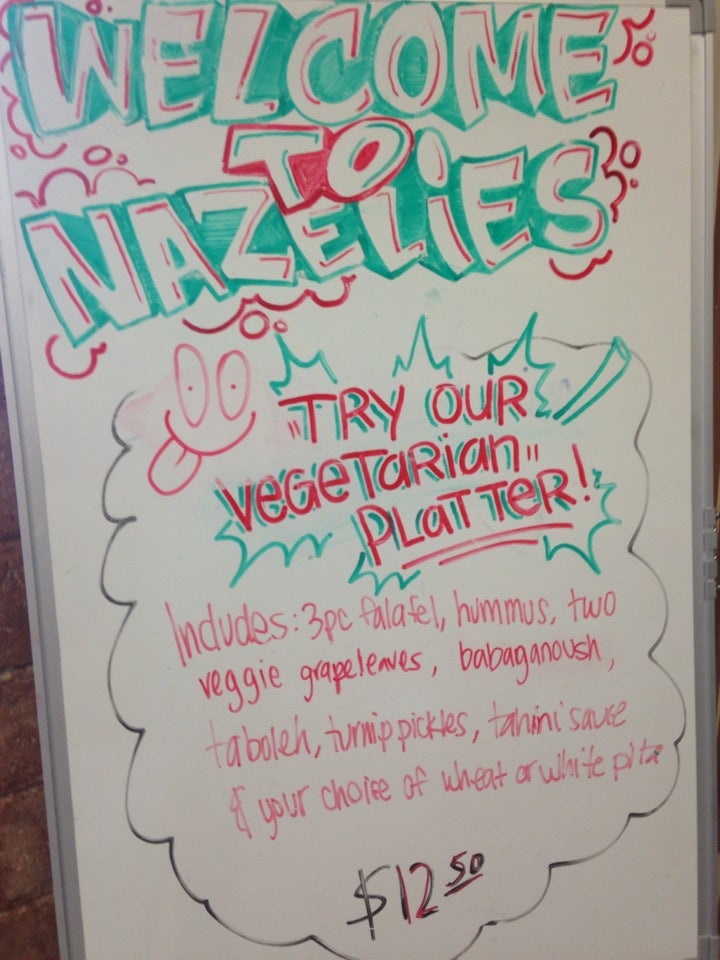 WELCOME
TO
NAZELIES
"TRY OUR
VEGETARIAN"
PLATTER!
Includes: 3pc falafel, hummus, two
veggie grapeleaves, babaganoush,
taboleh, turnip pickles, tahini sauce
& your choice of wheat or white pita
$12.50